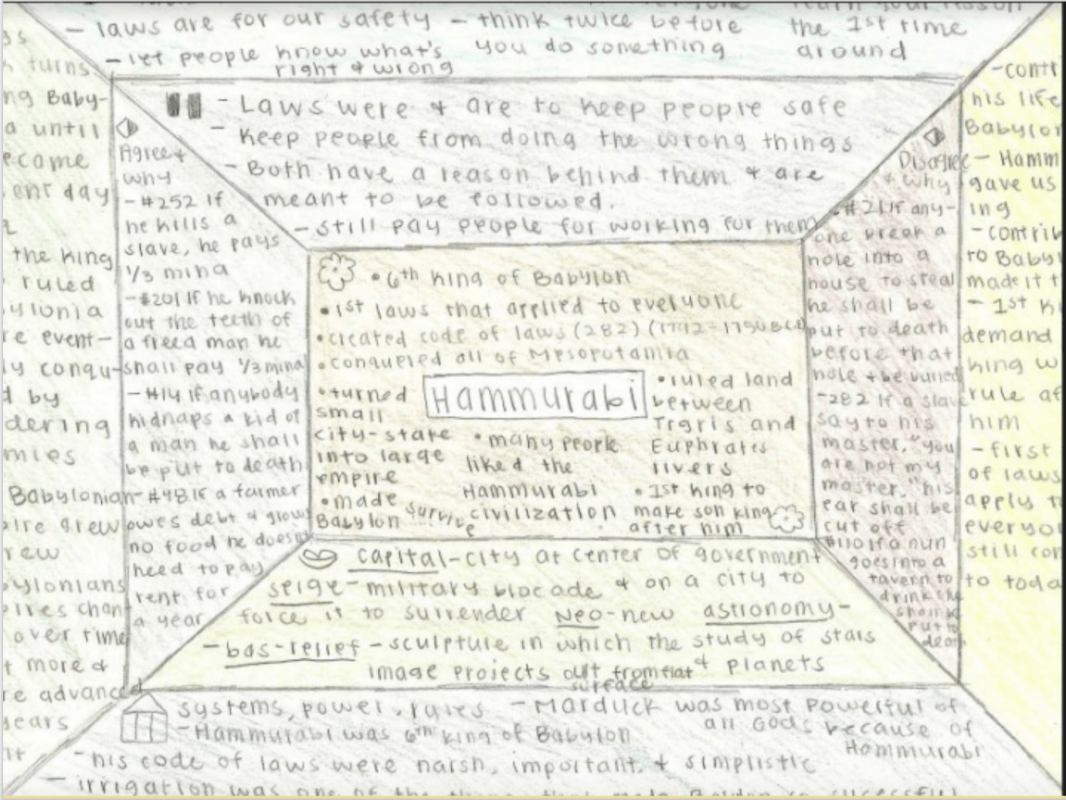 - laws are for our safety - think twice before
the 1st time
- let people know what's
you do something
around
right & wrong
- Laws were & are to keep people safe
- keep people from doing the wrong things
- Both have a reason behind them & are
meant to be followed.
- still pay people for working for them
Agree &
why
- #252 If
he kills a
slave, he pays
1/3 mina
- #201 If he knock
out the teeth of
a freed man he
shall pay 1/3 mina
- #14 If anybody
kidnaps a kid of
a man he shall
be put to death
- #48 If a farmer
owes debt & grows
no food he doesn't
need to pay
rent for
a year
• 6th king of Babylon
• 1st laws that applied to everyone
• created code of laws (282)
• conquered all of Mesopotamia
Hammurabi
• turned
small
city-state
into large
empire
• made
Babylon survive
• many people
liked the
Hammurabi
civilization
• ruled land
between
Tigris and
Euphrates
rivers
• 1st king to
make son king
after him
Disagree
& why
- #21 If any-
one break a
hole into a
house to steal
he shall be
put to death
before that
hole & be buried
- 282 If a slave
say to his
master, "you
are not my
master," his
ear shall be
cut off
#110 If a nun
goes into a
tavern to
drink she
shall be
put to
death
capital-city at center of government
seige-military blocade & on a city to
force it to surrender Neo-new astronomy-
- bas-relief - sculpture in which the study of stars
image projects out from flat & planets
surface
systems, power, rules - Marduck was most powerful of
all Gods because of
Hammurabi
- Hammurabi was 6th king of Babylon
- his code of laws were harsh, important, & simplistic
- irrigation was one of the
turns
ng Baby-
a until
ecame
ent day
the king
ruled
ylonia
re event-
ly conqu-
d by
dering
mies
Babylonian
pire grew
rew
ylonians
pires chan
over time
t more &
re advanced
years
- contr
his life
Babylon
- Hamm
gave us
ing
- contrib
to Baby
made it t
- 1st ki
demand
king w
rule af
him
- first
of laws
apply t
everyo
still con
to toda